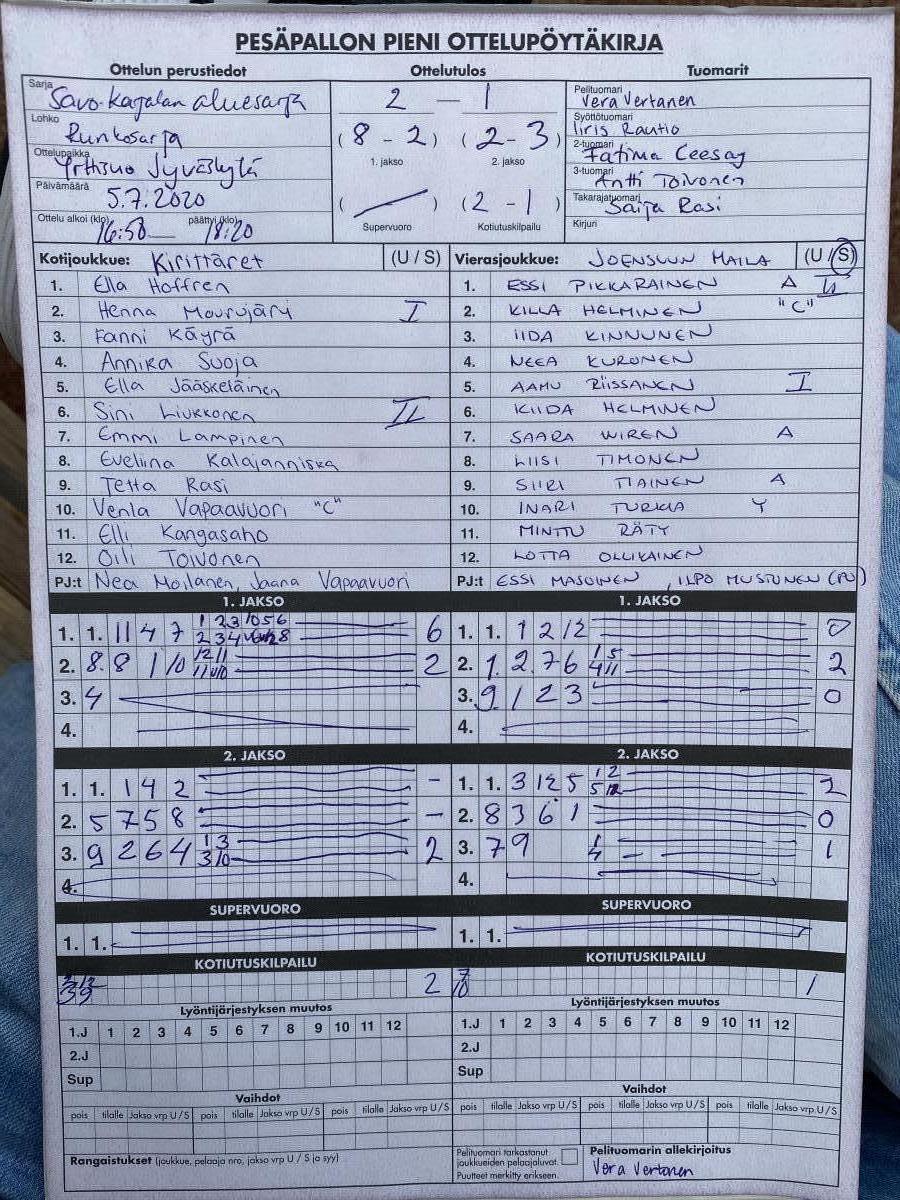 PESÄPALLON PIENI OTTELUPÖYTÄKIRJA
Ottelun perustiedot Ottelutulos Tuomarit
Sarja
Savo-Karjalan aluesarja
Lohko
Runkosarja
Ottelupaikka
Jyväskylä
Päivämäärä
5.7.2020
Ottelu alkoi (klo) päättyi (klo)
16:50 18:20
2 — 1
(8 - 2) (2 - 3)
1. jakso 2. jakso
( ) (2 - 1)
Supervuoro Kotiutuskilpailu
Pelituomari
Vera Vertanen
Syöttötuomari
Iiris Rautio
2-tuomari
Fatima Ceesay
3-tuomari
Antti Toivonen
Takarajatuomari
Saija Rasi
Kirjuri
Kotijoukkue: Kirittäret (U / S) Vierasjoukkue: JOENSUUN MAILA (U / S)
1. Ella Hoffren 1. ESSI PIKKARAINEN A II
2. Henna Mourujärv I 2. KILLA HELMINEN "C"
3. Fanni Käyrä 3. IIDA KINNUNEN
4. Annika Suoja 4. NEEA KURONEN
5. Ella Jääskeläinen 5. AAMU RIISSANEN I
6. Sini Liukkonen II 6. KIIDA HELMINEN
7. Emmi Lampinen 7. SAARA WIREN A
8. Eveliina Kalajanniska 8. LIISI TIMONEN
9. Tetta Rasi 9. SIIRI TIAINEN A
10. Venla Vapaavuori "C" 10. INARI TURKIA Y
11. Elli Kangasaho 11. MINTTU RÄTY
12. Oili Toivonen 12. LOTTA OLLIKAINEN
PJ:t Nea Moilanen, Jaana Vapaavuori PJ:t ESSI MASOINEN, ILPO MUSTONEN (PV)
1. JAKSO 1. JAKSO
1. 1. 11 4 7 6 1. 1. 1 2 12 0
2. 8. 8 1 10 2 2. 1. 2. 7 6 2
3. 4 3. 9. 1 2 3 0
4. 4.
2. JAKSO 2. JAKSO
1. 1. 1 4 2 - 1. 1. 3 12 5 2
2. 5 7 5 8 - 2. 8 3 6 1 0
3. 9 2 6 4 2 3. 7 9 1
4. 4.
SUPERVUORO SUPERVUORO
1. 1. 1. 1.
KOTIUTUSKILPAILU KOTIUTUSKILPAILU
2 1
Lyöntijärjestyksen muutos Lyöntijärjestyksen muutos
1.J 1 2 3 4 5 6 7 8 9 10 11 12 1.J 1 2 3 4 5 6 7 8 9 10 11 12
2.J 2.J
Sup Sup
Vaihdot Vaihdot
pois tilalle Jakso vrp U / S pois tilalle Jakso vrp U / S pois tilalle Jakso vrp U / S pois tilalle Jakso vrp U / S pois tilalle Jakso vrp U / S pois tilalle Jakso vrp U / S
Rangaistukset (joukkue, pelaaja nro, jakso vrp U / S ja syy)
Pelituomari tarkastanut
joukkueiden pelaajaluvat.
Puutteet merkitty erikseen.
Pelituomarin allekirjoitus
Vera Vertanen